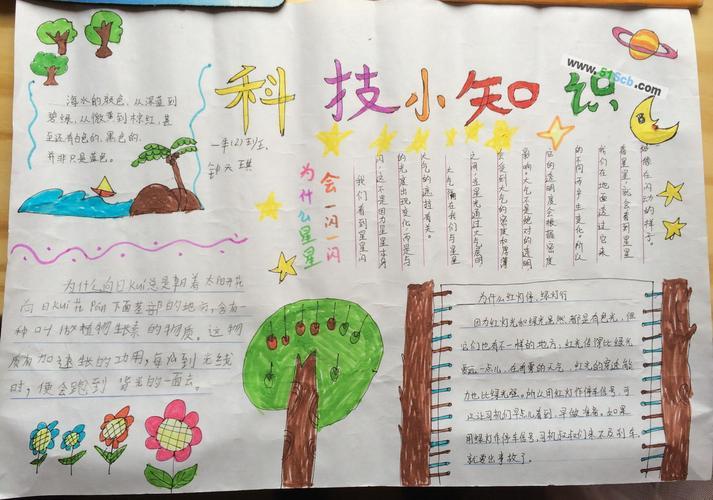 科技小知识
www.515cb.com
一年(2)班
海水的颜色,从深蓝到
碧绿,从微黄到棕红,甚
至还有白色的、黑色的,
并非只是蓝色。
为什么星星
会一闪一闪
我们看到星星闪
闪,这不是因为星星本身
的光度出现变化,而是与
大气的遮挡有关。
大气隔在我们与星星
之间,当星光通过大气层时
会受到大气的密度和厚薄
影响。大气不是绝对的透明
它的透明度会根据密度
的不同而产生变化。所以
我们在地面透过它来
看星星,就会看到星星
好像在闪动的样子。
为什么向日kui总是朝着太阳开花
向日kui花pan下面茎部的地方,含有一
种叫做植物生长素的物质。这物
质有加速生长的功用,每次到光线
时,便会跑到背光的一面去。
为什么红灯停,绿灯行
因为红灯光和绿光虽然都是有色光,但
它们也有不一样的地方,红光传得比绿光
更远一点儿,在有雾的天气,红光的穿透能
力也比绿光强。所以用红灯作停车信号,可
以让司机们早点儿看到,早做准备。如果
用绿灯作停车信号,司机叔叔们来不及刹车
就要出事故了。